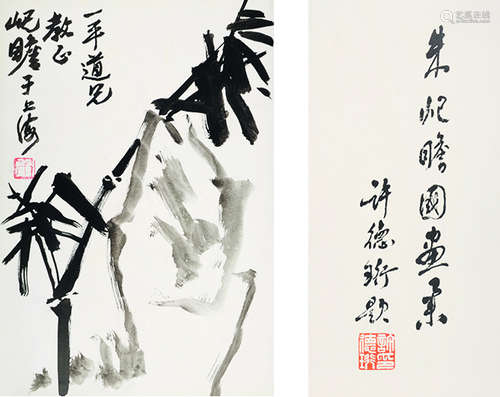 一平道兄
教正
屺瞻于上海
朱屺瞻國画集
许德珩题